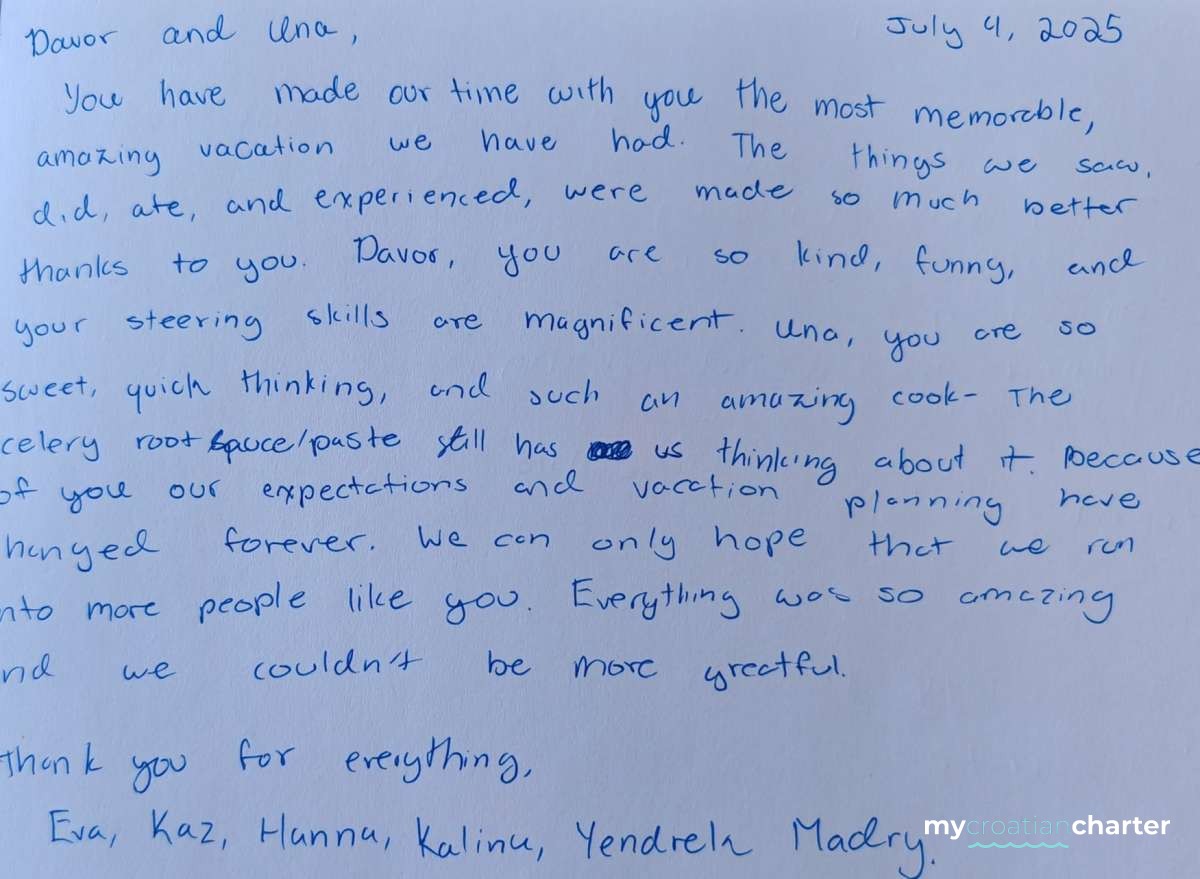 Davor and Una,
July 4, 2025
You have made our time with you the most memorable,
amazing vacation we have had. The things we saw,
did, ate, and experienced, were made so much better
thanks to you. Davor, you are so kind, funny, and
your steering skills are magnificent. Una, you are so
sweet, quick thinking, and such an amazing cook- The
celery root sauce/paste still has us thinking about it. Because
of you our expectations and vacation planning have
hanged forever. We can only hope that we run
nto more people like you. Everything was so amazing
nd we couldn't be more greatful.
Thank you for everything,
Eva, Kaz, Hanna, Kalina, Yendrek Madry.
mycroatiancharter